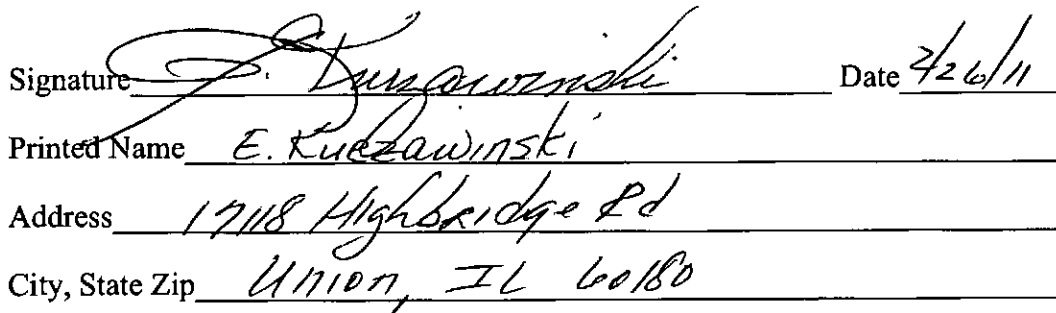 Signature E. Kurzawinski Date 2/26/11
Printed Name E. Kurzawinski
Address 17118 Highbridge Rd
City, State Zip Union, IL 60180